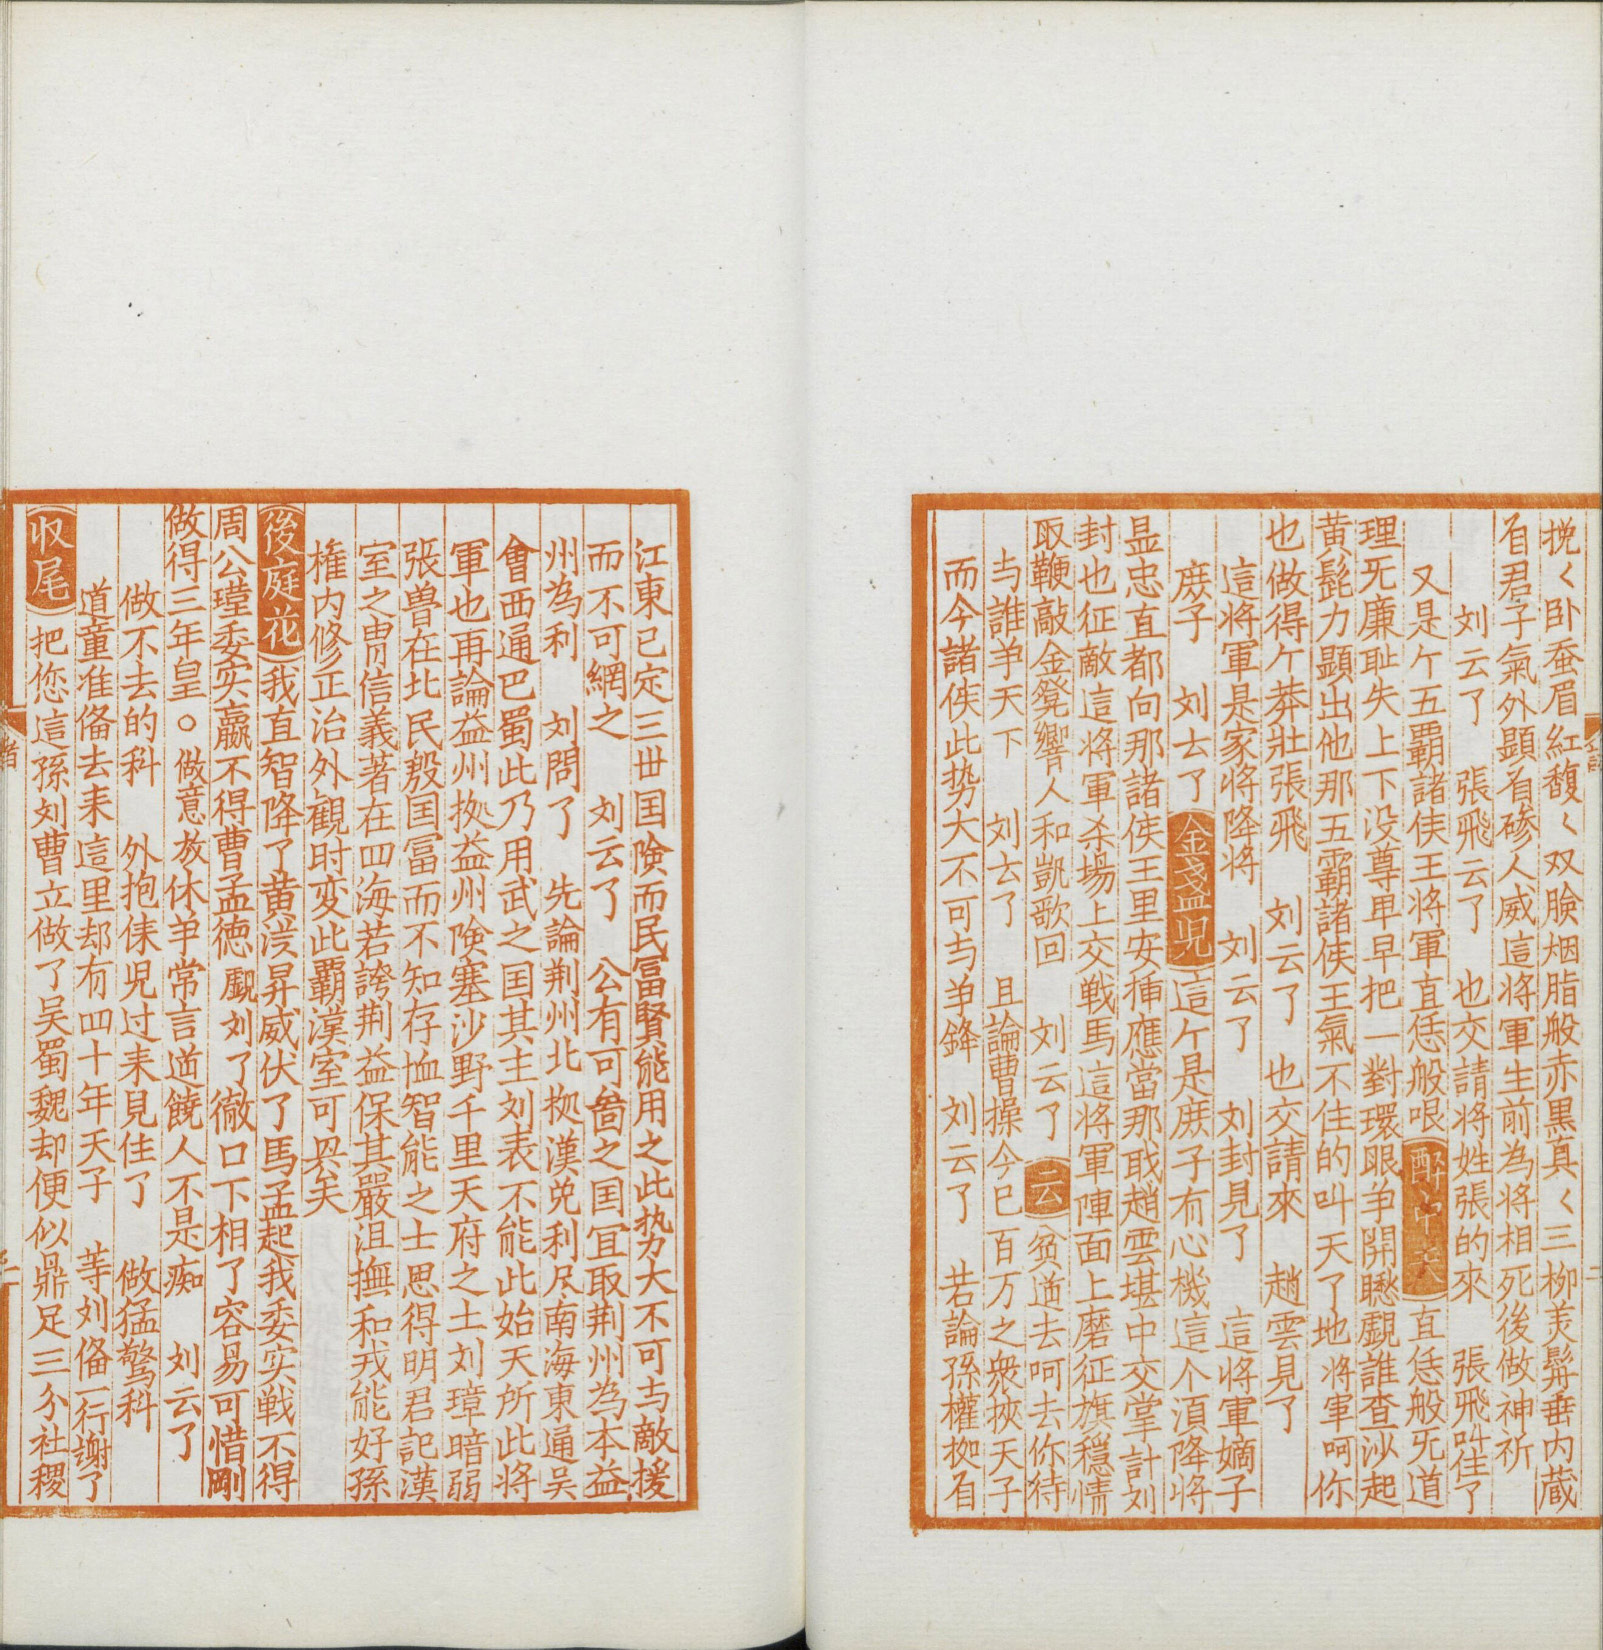 挽〱卧蚕眉紅馥〱双臉烟脂般赤黑真〱三柳美髯垂内藏
君子氣外顕有磣人威這将軍生前為将相死後做神祈
刘云了　張飛云了　也交請将姓張的來　張飛呌住了
又是亇五霸諸侯王将軍直恁般哏 醉中天 直恁般旡道
理旡廉耻失上下没尊卑早把一對環眼争開䁱覷誰查沙起
黄髭力顕出他那五霸諸侯王氣不住的叫天了地将軍呵你
也做得亇莽壯張飛　刘云了　也交請來　趙雲見了
這将軍是家将降将　刘云了　刘封見了　這将軍嫡子
庶子　刘去了 金盞児 這亇是庶子有心機這个湏降将
显忠直都向那諸侯王里安揷應當那戝趙雲堪中交掌計刘
封也征敵這将軍杀塲上交戦馬這将軍陣面上磨征旗穏情
取鞭敲金鐙響人和凱歌回　刘云了 云 貧道去呵去你待
与誰争天下　刘去了　且論曹操今已百万之衆挾天子
而今諸侯此势大不可与争鋒　刘云了　若論孫權㧛有
江東已定三世囯険而民冨賢能用之此势大不可与敵援
而不可網之　刘云了　公有可啚之囯冝取荆州為本益
州為利　刘問了　先論荆州北㧛漢兊利尽南海東通吴
會西通巴蜀此乃用武之囯其主刘表不能此始天所此将
軍也再論益州㧛益州険塞沙野千里天府之土刘璋暗弱
張曽在北民殷囯冨而不知存恤智能之士思得明君記漢
室之胄信義著在四海若誇荆益保其嚴沮撫和戎能好孫
権内修正治外觀时変此覇漢室可㒷矣
後庭花 我直智降了黄漢昇威伏了馬孟起我委实戦不得
周公瑾委实贏不得曹孟徳覷刘了徹口下相了容易可惜剛
做得三年皇○做意放休争常言道饒人不是痴　刘云了
做不去的科　外抱俫児过来見住了　做猛驚科
道童准俻去来這里却有四十年天子　等刘俻一行謝了
収尾 把您這孫刘曹立做了吴蜀魏却便似鼎足三分社稷